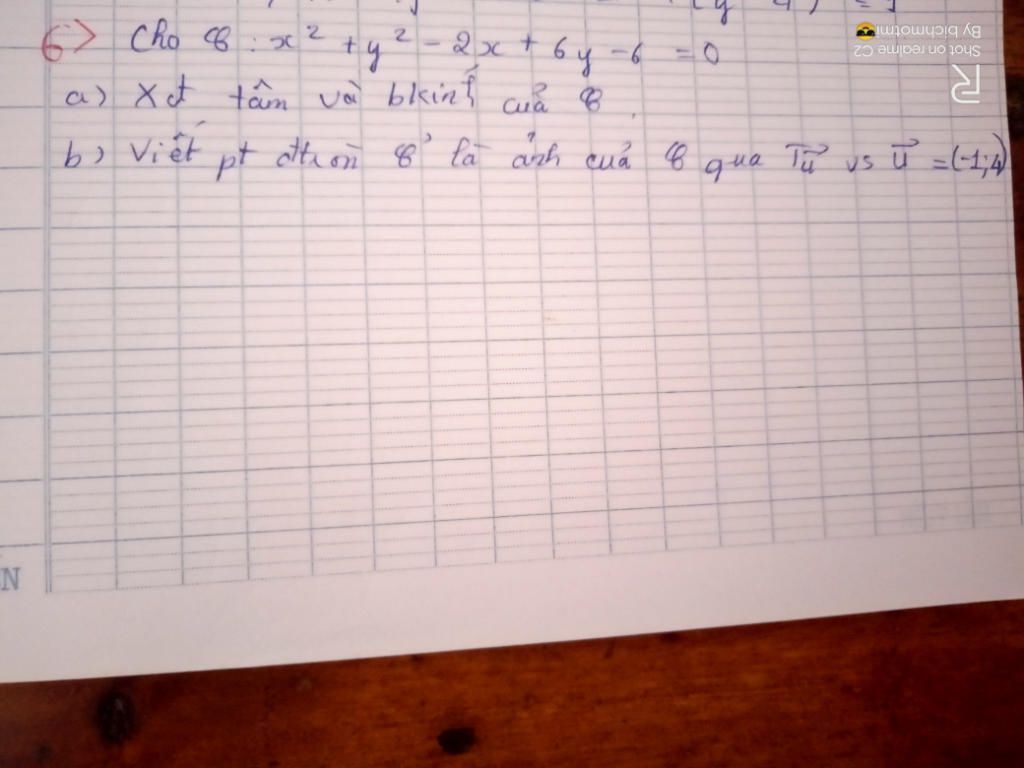 6> Cho C : x² + y² - 2x + 6y - 6 = 0
a) Xđ tâm và bkính của C.
b) Viết pt đtròn C' là ảnh của C qua Tu⃗ vs u⃗ = (-1;4)
Shot on realme C2
By bichmotmi
N